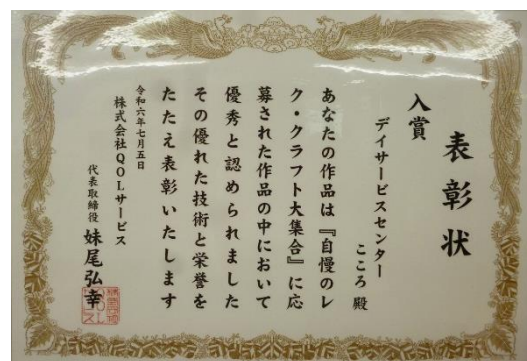 表彰状
入賞
デイサービスセンター
こころ 殿
あなたの作品は『自慢のレ
ク・クラフト大集合』に応
募された作品の中において
優秀と認められました
その優れた技術と栄誉を
たたえ表彰いたします
令和六年七月五日
株式会社QOLサービス
代表取締役 妹尾弘幸